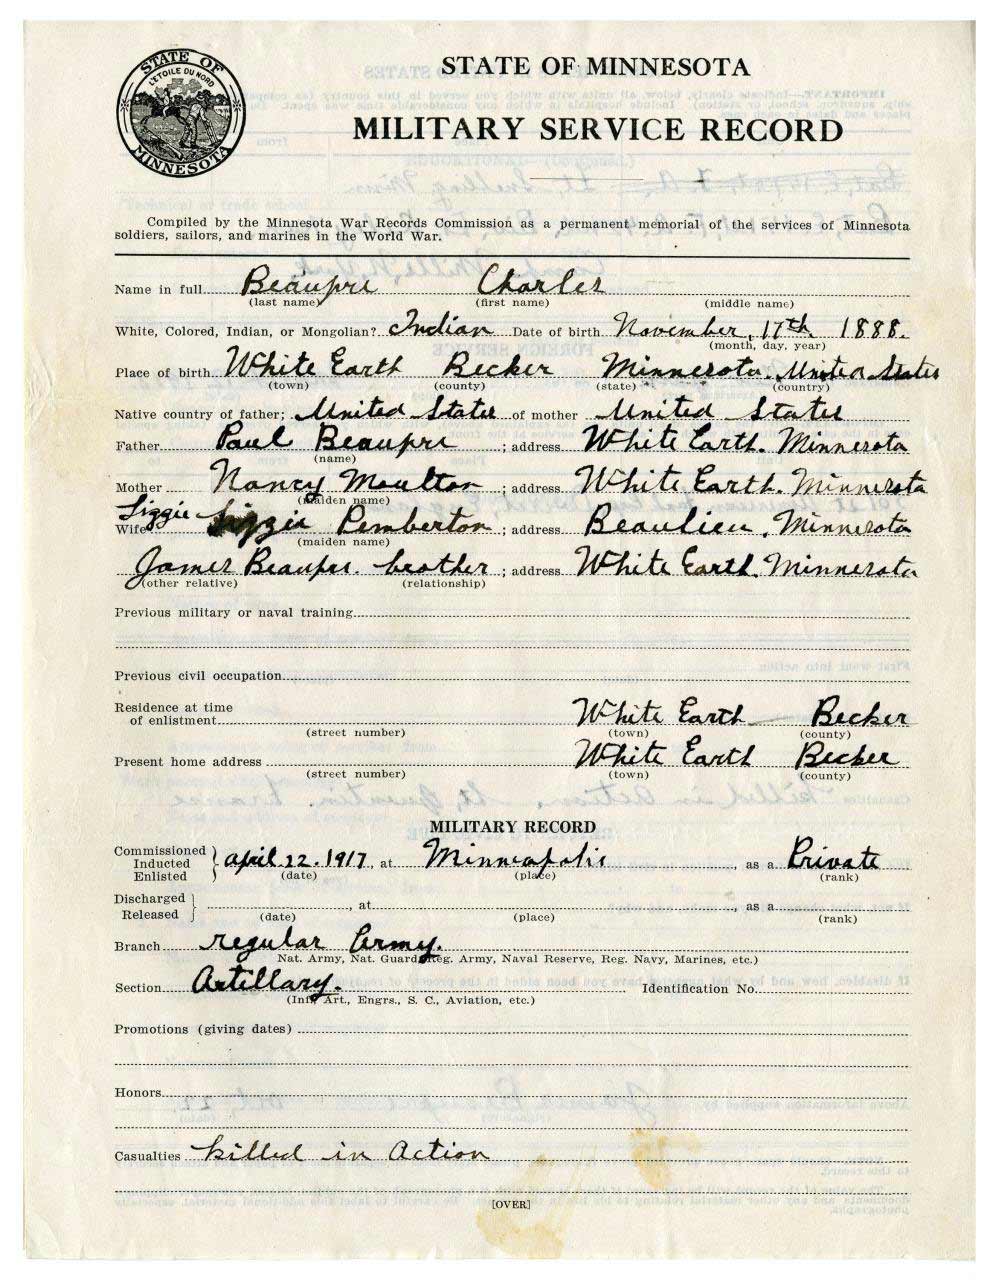 STATE OF
L'ETOILE DU NORD
MINNESOTA
STATE OF MINNESOTA
MILITARY SERVICE RECORD
Compiled by the Minnesota War Records Commission as a permanent memorial of the services of Minnesota
soldiers, sailors, and marines in the World War.
Name in full Beaupre Charles
(last name) (first name) (middle name)
White, Colored, Indian, or Mongolian? Indian Date of birth November, 17th 1888.
(month, day, year)
Place of birth White Earth Becker Minnesota. United States
(town) (county) (state) (country)
Native country of father; United States of mother United States
Father Paul Beaupre ; address White Earth. Minnesota
(name)
Mother Nancy Moulton ; address White Earth. Minnesota
(maiden name)
Lizzie
Wife Lizzie Pemberton ; address Beaulieu, Minnesota
(maiden name)
James Beaupre. brother ; address White Earth. Minnesota
(other relative) (relationship)
Previous military or naval training
Previous civil occupation
Residence at time
of enlistment White Earth Becker
(street number) (town) (county)
Present home address White Earth Becker
(street number) (town) (county)
MILITARY RECORD
Commissioned
Inducted
Enlisted } April 22. 1917, at Minneapolis, as a Private
(date) (place) (rank)
Discharged
Released } , at , as a
(date) (place) (rank)
Branch regular Army.
Nat. Army, Nat. Guard, Reg. Army, Naval Reserve, Reg. Navy, Marines, etc.)
Section Artillary. Identification No.
(Inf., Art., Engrs., S. C., Aviation, etc.)
Promotions (giving dates)
Honors
Casualties killed in Action
[OVER]